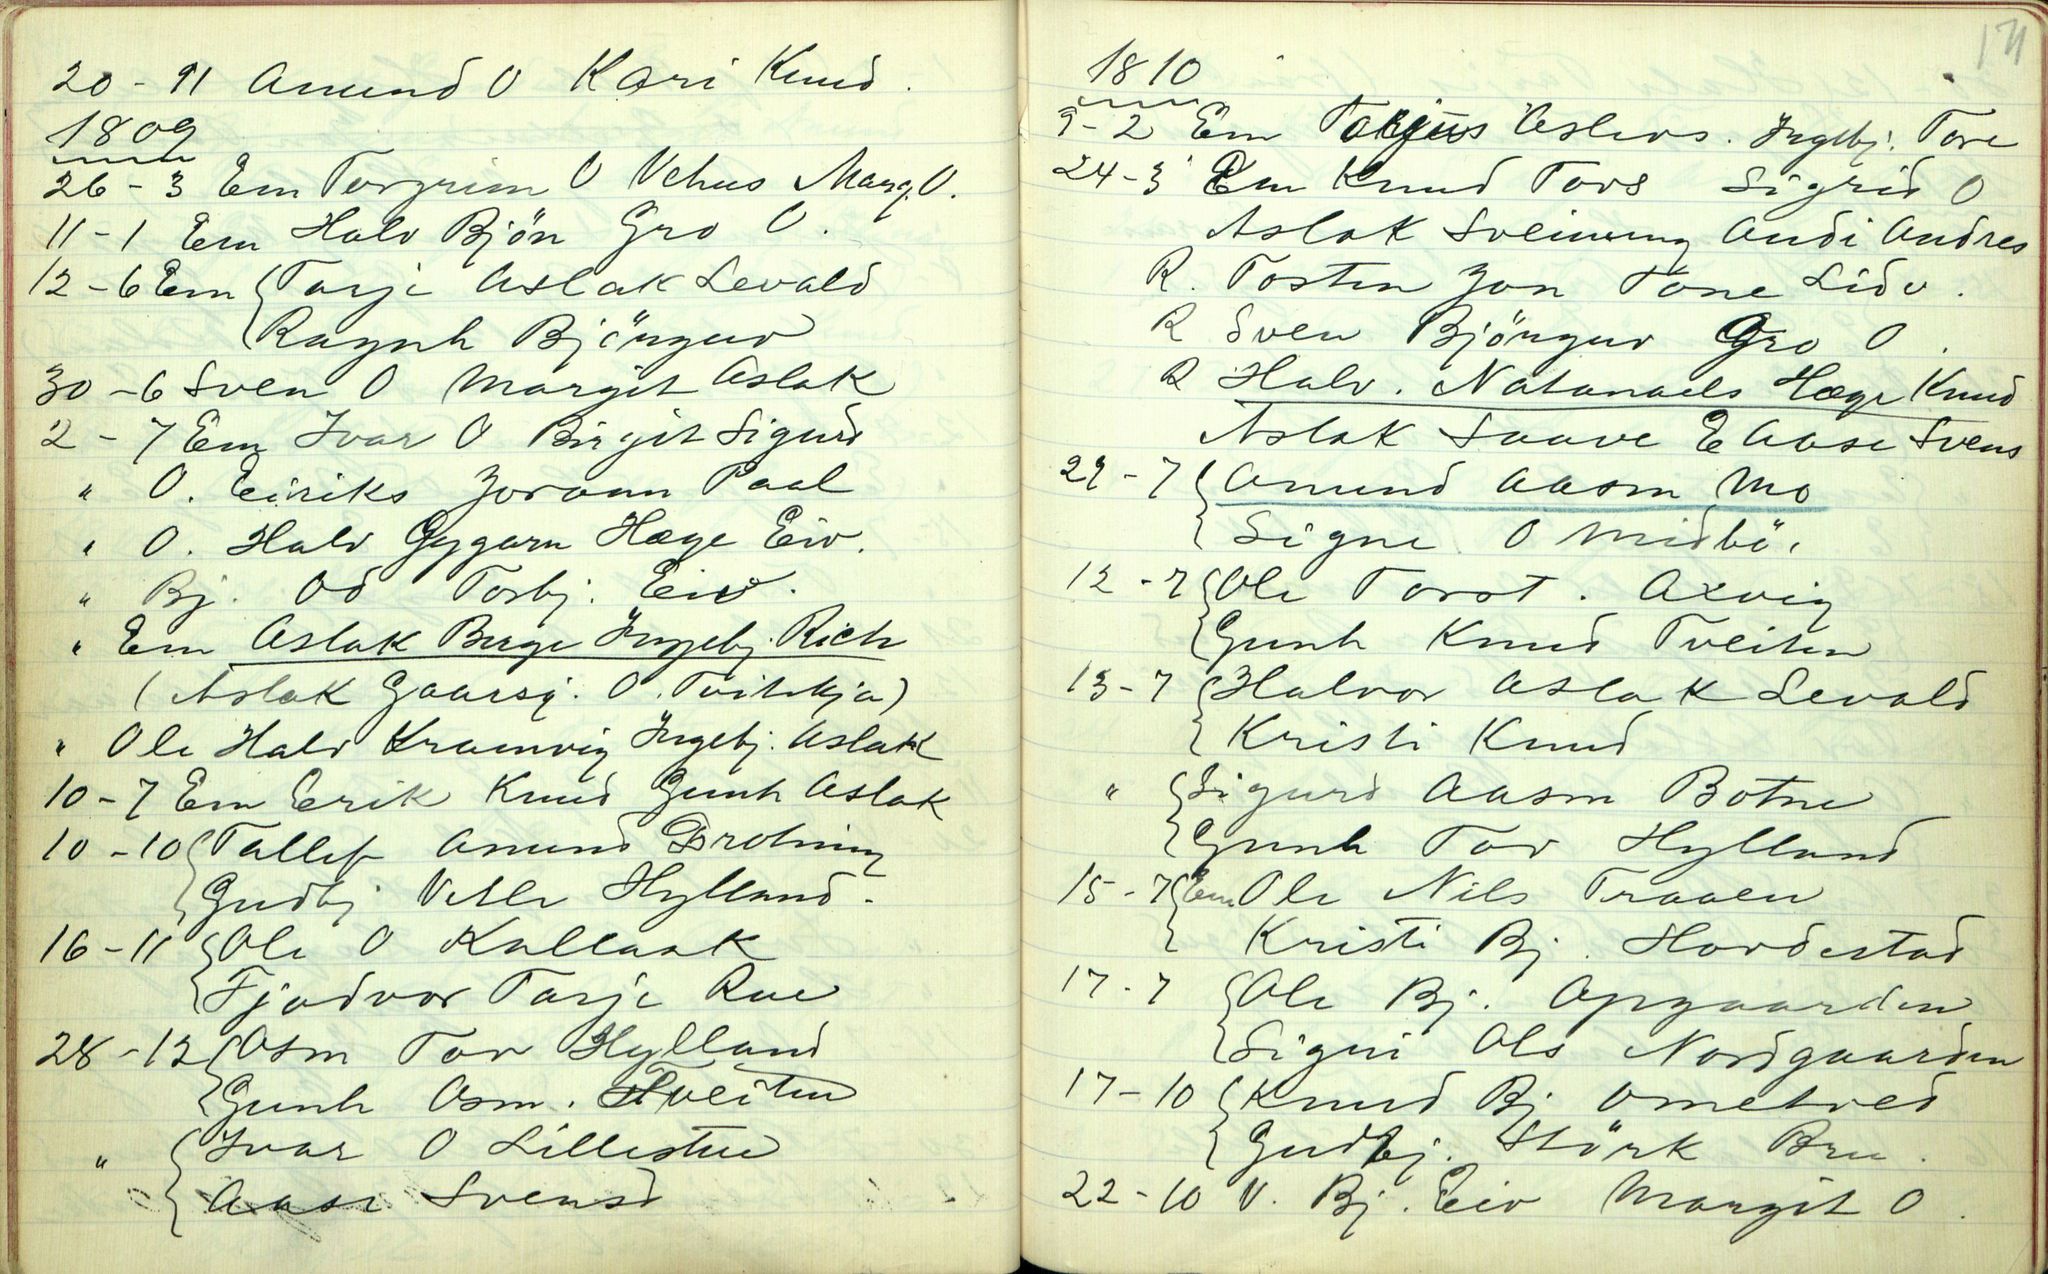 20 - 11 Amund O Kari Knud.
1809
26 - 3 Em Torgrim O Vehus Marg. O.
11 - 1 Em Halv Bjön Gro O.
12 - 6 Em Tarje Aslak Levald
Ragnh Björguv
30 - 6 Sven O Margit Aslak
2 - 7 Em Ivar O Birgit Sigurd
" O. Eiriks Jorann Paal
" O. Halv Gygarn Hæge Eiv.
" Bj. Od Torbj. Eiv.
" Em Aslak Berge Ingebj. Rich
(Aslak Gaarsj. O. Tvitskja)
" Ole Halv Kramvig Ingebj. Aslak
10 - 7 Em Erik Knud Gunh Aslak
10 - 10 Tallef Amund Brotning
Gudbj Vetle Hylland.
16 - 11 Ole O Kallaak
Fjodvor Tarje Rue
28 - 12 Osm Tov Hylland
Gunh Osm. Tveiten
" Ivar O Lillestue
Aase Svensd
171
1810
9 - 2 Em Torjus Eslevs. Ingebj. Tore
24 - 3 Em Knud Tovs Sigrid O
Aslak Sveinung Andi Andres
R. Tosten Jon Tone Lidv.
R Sven Björguv Gro O.
R Halv. Natanaels Hæge Knud
Aslak Saave E Aase Svens
29 - 7 Amund Aasm Mo
Signe O Midbö.
12 - 7 Ole Torst. Axvig
Gunh Knud Tveiten
13 - 7 Halvor Aslak Levald
Kristi Knud
" Sigurd Aasm Botne
Gunh Tov Hylland
15 - 7 Em Ole Nils Traaen
Kristi Bj. Hovdestad
17 - 7 Ole Bj. Opgaarden
Signi Ols Nordgaarden
17 - 10 Knud Bj Ometved
Gudbj. Störk Bru.
22 - 10 V. Bj. Eiv Margit O.